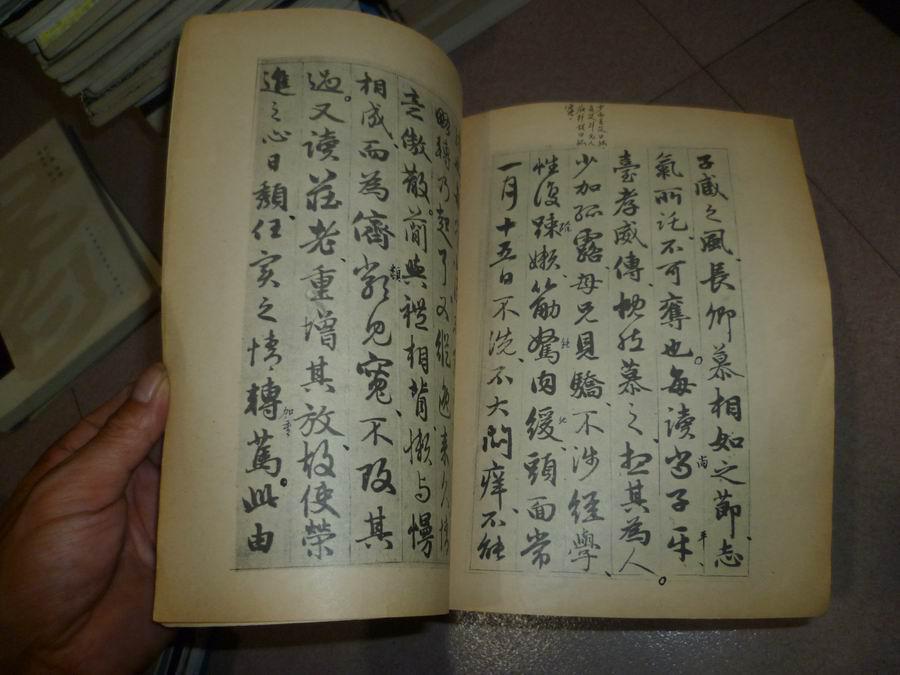 子臧之風長卿慕相如之節志
氣所託不可奪也。每讀尚子平
尚
平
臺孝威傳慨然慕之想其為人。
少加孤露母兄見驕不涉經學
性復疎嬾筋駑肉緩頭面常
一月十五日不洗不大悶癢不能
略轉乃起耳又縱逸來久情
意傲散。簡與禮相背懶與慢
相成而為儕類見寬不攻其
類
過。又讀莊老重增其放故使榮
進之心日頹任實之情轉篤。此由
加重